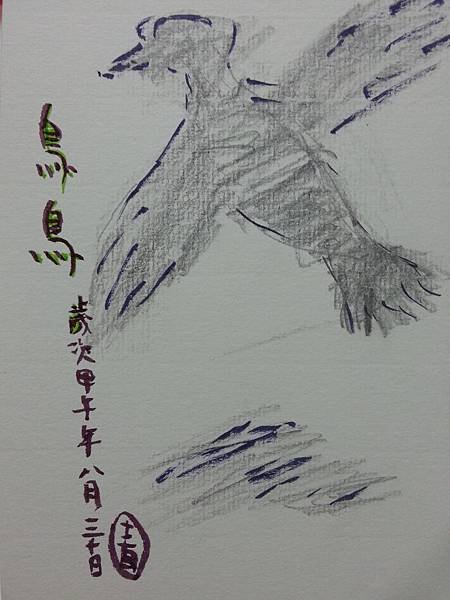 烏鳥
歲次甲午年八月三十日
青